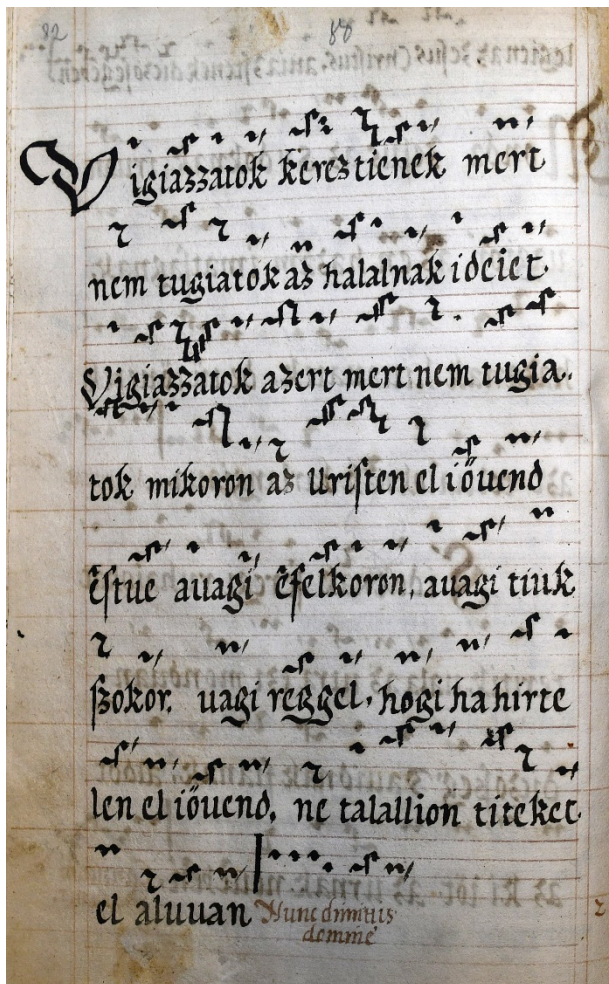 82 88
Vigiazzatok kereztienek mert
nem tugiatok az halalnak ideiet
Vigiazzatok azert mert nem tugia.
tok mikoron az Uriſten el iöuend
eſtue auagi eſelkoron, auagi tiuk
ſzokor. uagi reggel, hogi ha hirte
len el iöuend, ne talallion titeket
el aluuan Nunc dimittis
domine